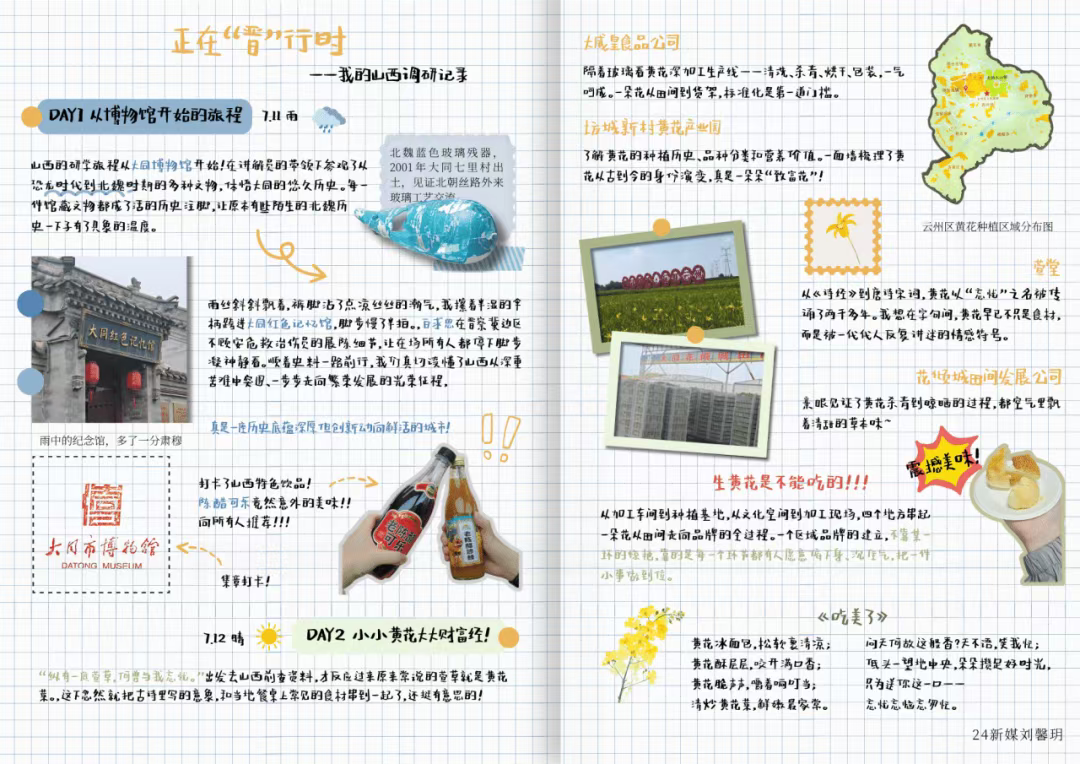 正在“晋”行时
——我的山西调研记录
DAY1 从博物馆开始的旅程
7.11 雨
山西的研学旅程从大同博物馆开始!在讲解员的带领下参观了从
恐龙时代到北魏时期的多种文物,体悟大同的悠久历史。每一
件馆藏文物都成了活的历史注脚,让原本有些陌生的北魏历
史一下子有了具象的温度。
北魏蓝色玻璃残器,
2001年大同七里村出
土,见证北朝丝路外来
玻璃工艺交流。
大同红色记忆馆
雨中的纪念馆,多了一分肃穆
雨丝斜斜飘着,裤脚沾了点凉丝丝的潮气,我攥着半湿的伞
柄踏进大同红色记忆馆,脚步慢了半拍。白求恩在晋察冀边区
不顾安危救治伤员的展陈细节,让在场所有人都停下脚步
凝神静看。顺着史料一路前行,我们真切读懂了山西从深重
苦难中突围、一步步走向繁荣发展的光荣征程。
真是一座历史底蕴深厚但创新动向鲜活的城市!
打卡了山西特色饮品!
陈醋可乐竟然意外的美味!!
向所有人推荐!!!
老陈醋
可乐
大同市博物馆
DATONG MUSEUM
集章打卡!
7.12 晴
DAY2 小小黄花大大财富经!
“纵有一庭萱草,何曾与我忘忧。”出发去山西前查资料,才反应过来原来常说的萱草就是黄花
菜。,这下忽然就把古诗里写的意象,和当地餐桌上常见的食材串到一起了,还挺有意思的!
大咸皇食品公司
隔着玻璃看黄花深加工生产线——清洗、杀青、烘干、包装,一气
呵成。一朵花从田间到货架,标准化是第一道门槛。
坊城新村黄花产业园
了解黄花的种植历史、品种分类和营养价值。一面墙梳理了黄
花从古到今的身份演变,真是一朵朵“致富花”!
云州区黄花种植区域分布图
萱堂
从《诗经》到唐诗宋词,黄花以“忘忧”之名被传
诵了两千多年。我想在字句间,黄花早已不只是食材,
而是被一代代人反复讲述的情感符号。
花倾城田间发展公司
亲眼见证了黄花杀青到晾晒的过程,都空气里飘
着清甜的草本味~
震撼美味!
生黄花是不能吃的!!!
从加工车间到种植基地,从文化空间到加工现场,四个地方串起
一朵花从田间走向品牌的全过程。一个区域品牌的建立,不靠某一
环的惊艳,靠的是每一个环节都有人愿意俯下身、沉住气,把一件
小事做到位。
《吃美了》
黄花冰面包,松软裹清凉;
黄花酥层层,咬开满口香;
黄花脆声声,嚼着响叮当;
清炒黄花菜,鲜嫩最家常。
问天何故这般香?天不语,笑我忙;
低头一望地中央,朵朵攒足好时光,
只为送你这一口——
忘忧忘恼忘匆忙。
24新媒刘馨玥